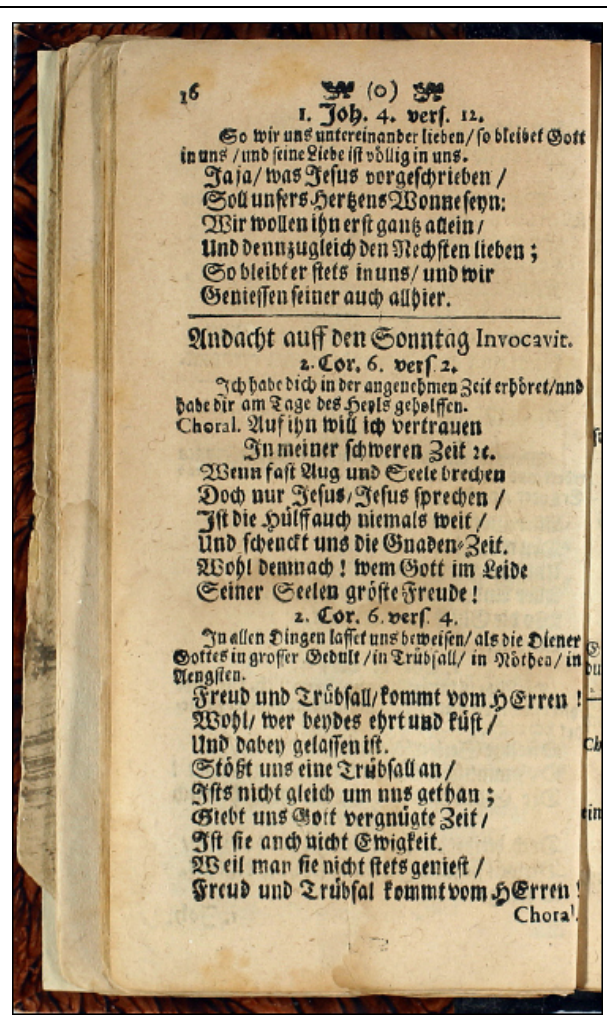 16 (o)
1. Joh. 4. vers. 12.
So wir uns untereinander lieben/ so bleibet Gott
in uns / und seine Liebe ist völlig in uns.
Ja ja/ was Jesus vorgeschrieben /
Soll unsers Hertzens Wonne seyn:
Wir wollen ihn erst gantz allein /
Und denn zugleich den Nechsten lieben ;
So bleibt er stets in uns/ und wir
Geniessen seiner auch allhier.
Andacht auff den Sonntag Invocavit.
2. Cor. 6. vers. 2.
Ich habe dich in der angenehmen Zeit erhöret/und
habe dir am Tage des Heyls geholffen.
Choral. Auf ihn will ich vertrauen
In meiner schweren Zeit ꝛc.
Wenn fast Aug und Seele brechen
Doch nur Jesus/ Jesus sprechen /
Ist die Hülff auch niemals weit /
Und schenckt uns die Gnaden-Zeit.
Wohl demnach ! wem Gott im Leide
Seiner Seelen gröste Freude !
2. Cor. 6. vers. 4.
In allen Dingen lasset uns beweisen/ als die Diener
Gottes in grosser Gedult / in Trübsall/ in Nöthen/ in
Aengsten.
Freud und Trübsall/ kommt vom HErren !
Wohl/ wer beydes ehrt und küst /
Und dabey gelassen ist.
Stößt uns eine Trübsall an /
Ists nicht gleich um nns gethan ;
Giebt uns Gott vergnügte Zeit /
Ist sie anch nicht Ewigkeit.
Weil man sie nicht stets geniest /
Freud und Trübsal kommt vom HErren !
Choral.